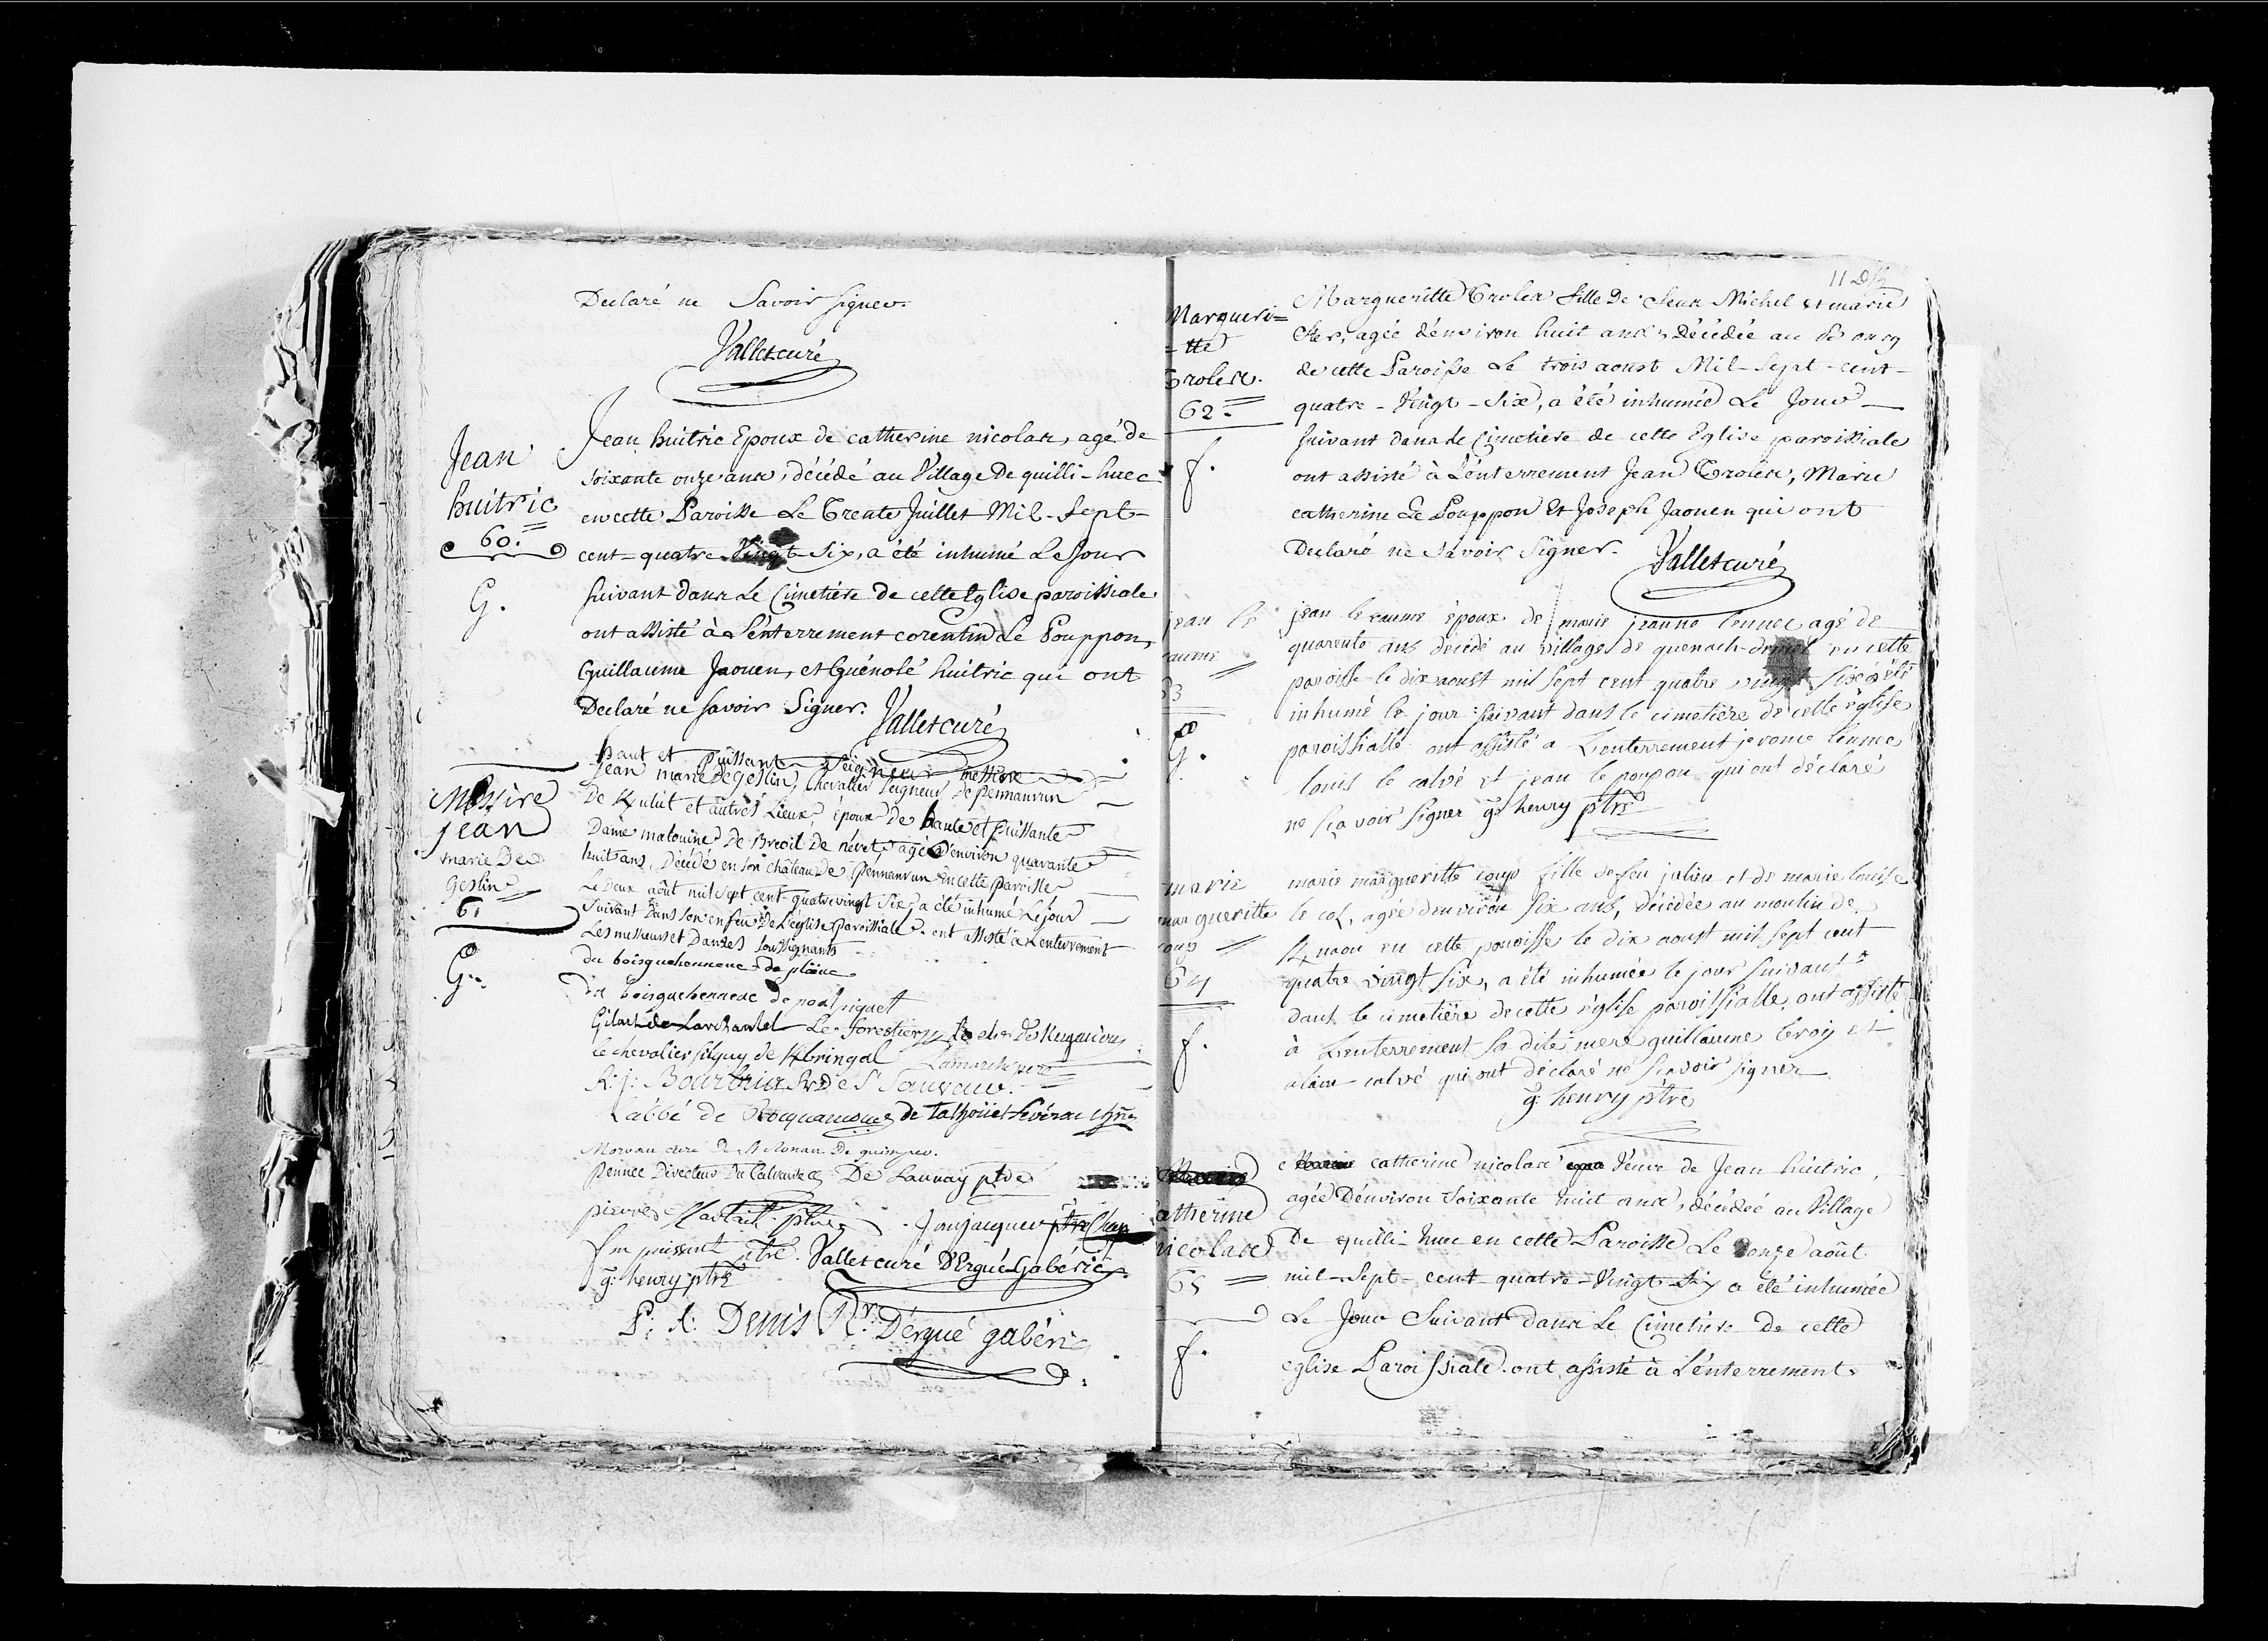 Declaré ne Savoir signer.
Vallet curé
Jean
huitric
60.
G.
Jean huitric Epoux de catherine nicolas, agé de
soixante onze ans, décédé au Village De quilli-huec
en cette Paroisse Le Trente Juillet Mil-Sept-
cent-quatre-Vingt-Six, a été inhumé Le Jour
suivant dans Le Cimetière de cette Eglise paroissiale
ont assisté à L'enterrement corentin Le Pouppon,
Guillaume Jaouen, et Guénolé huitric qui ont
Declaré ne savoir Signer. Vallet curé
Messire
jean
marie De
Geslin
61
G.
haut et Puissant Seigneur Messire
Jean marie De Geslin, Chevalier Seigneur De pennanrun
De et autres Lieux, époux de haute et puissante
Dame malouine De Breil De névet agé D'environ quarante
huit ans, Décédé en son château De pennanrun En cette paroisse
Le Deux août mil Sept cent quatre vingt Six, a été inhumé Le jour
Suivant Dans son enfeu De L'eglise paroissiale. ont assisté à L'enterrement
Les messieurs et Dames Soussignants
du boisguehenneuc de
du boisguehenneuc de poulpiquet
Gilart de Larchantel Le forestier
le chevalier silguy de
R: j: De St Sauveur.
L'abbé de de talhouët Sévérac
Morvan curé De St Ronan De quimper.
pennec Directeur Du Calvaire De Launay ptre
pierre ptre
ptre. Vallet curé D'Ergué-Gabéric
g: henry ptre
P: A: Denis Rr. D'ergué gabéric
11
Margueri=
=tte
Troles.
62.
f.
Margueritte Troles fille De Jean Michel et marie
agée d'environ huit ans, Décédée au Bourg
de cette Paroisse Le trois aoust Mil-Sept-cent-
quatre-Vingt-Six, a été inhumée Le Jour
suivant dans le Cimetière de cette Eglise paroissiale
ont assisté à L'enterrement Jean Troles, Marie
catherine Le Pouppon Et Joseph Jaouen qui ont
Declaré ne Savoir Signer. Vallet curé
jean le
G.
jean le époux de marie jeanne lennec agé de
quarente ans décédé au village de quenach- en cette
paroisse le dix aoust mil sept cent quatre vingt six a été
inhumé le jour suivant dans le cimetière de cette église
paroissialle ont assisté a L'enterrement jerome lennec
louis le calvé et jean le poupon qui ont déclaré
ne sçavoir signer g: henry ptre
marie
margueritte
64
f.
marie margueritte fille de feu julien et de marie louise
le col, agée d'environ six ans, décédée au moulin de
en cette paroisse le dix aoust mil sept cent
quatre vingt six, a été inhumée le jour suivant
dans le cimetière de cette église paroissialle, ont assisté
à L'enterrement sa dite mere guillaume le roy et
alain calvé qui ont déclaré ne sçavoir signer
g: henry ptre
catherine
nicolas
65
f.
catherine nicolas Veuve de Jean huitric,
agée D'environ soixante huit ans, décédée au Village
De quilli-huec en cette Paroisse Le onze août
mil-Sept-cent-quatre-Vingt-Six a été inhumée
Le Jour Suivant dans Le Cimetière De cette
eglise Paroissiale. ont assisté à L'enterrement